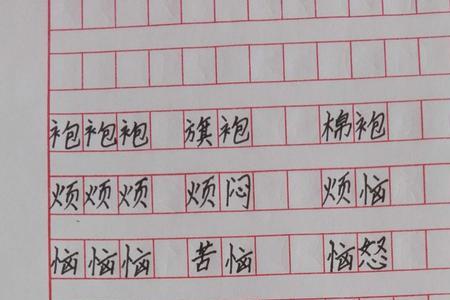 袍袍袍 旗袍 棉袍
烦烦烦 烦闷 烦恼
恼恼恼 苦恼 恼怒